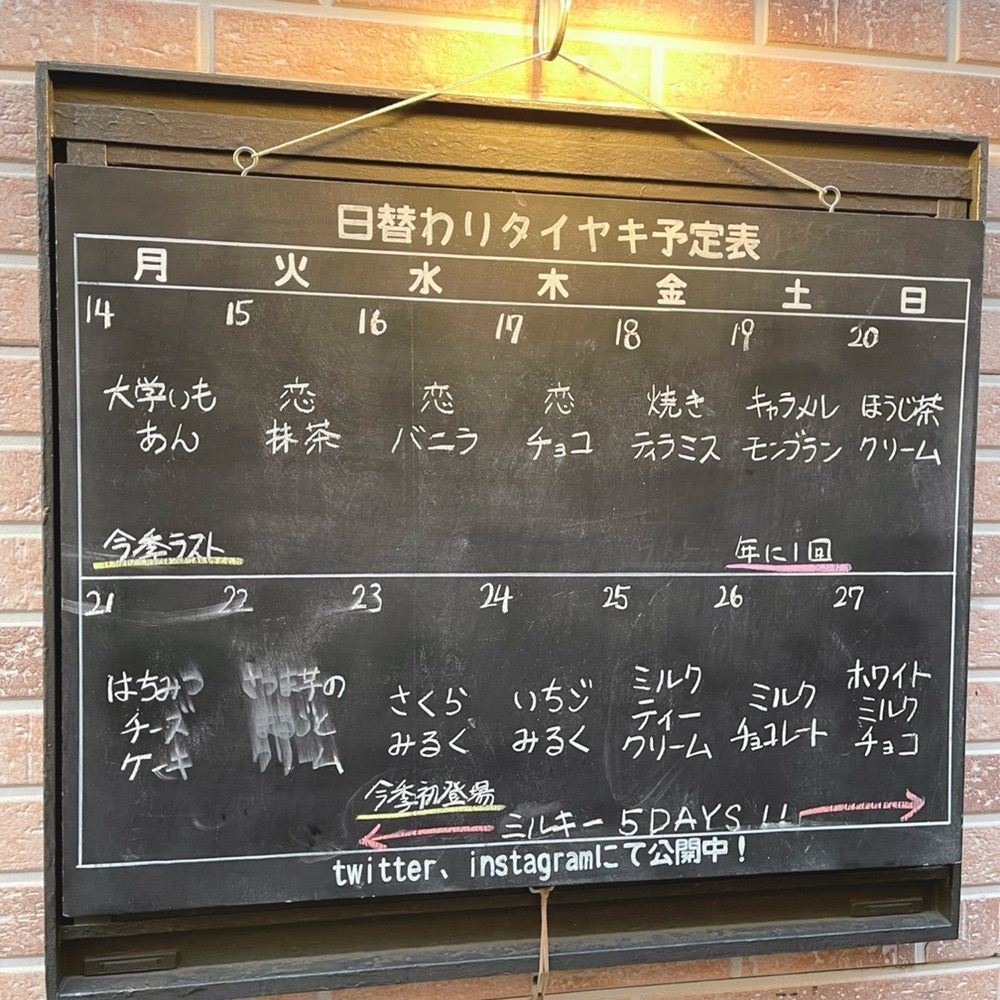 日替わりタイヤキ予定表
月 火 水 木 金 土 日
14 15 16 17 18 19 20
大学いも 恋 恋 恋 焼き キャラメル ほうじ茶
あん 抹茶 バニラ チョコ ティラミス モンブラン クリーム
今季ラスト 年に1回
21 22 23 24 25 26 27
はちみつ 芋の さくら いちご ミルク ミルク ホワイト
チーズ みるく みるく ティー チョコレート ミルク
ケーキ クリーム チョコ
今季初登場
ミルキー 5DAYS!!
twitter、instagramにて公開中！